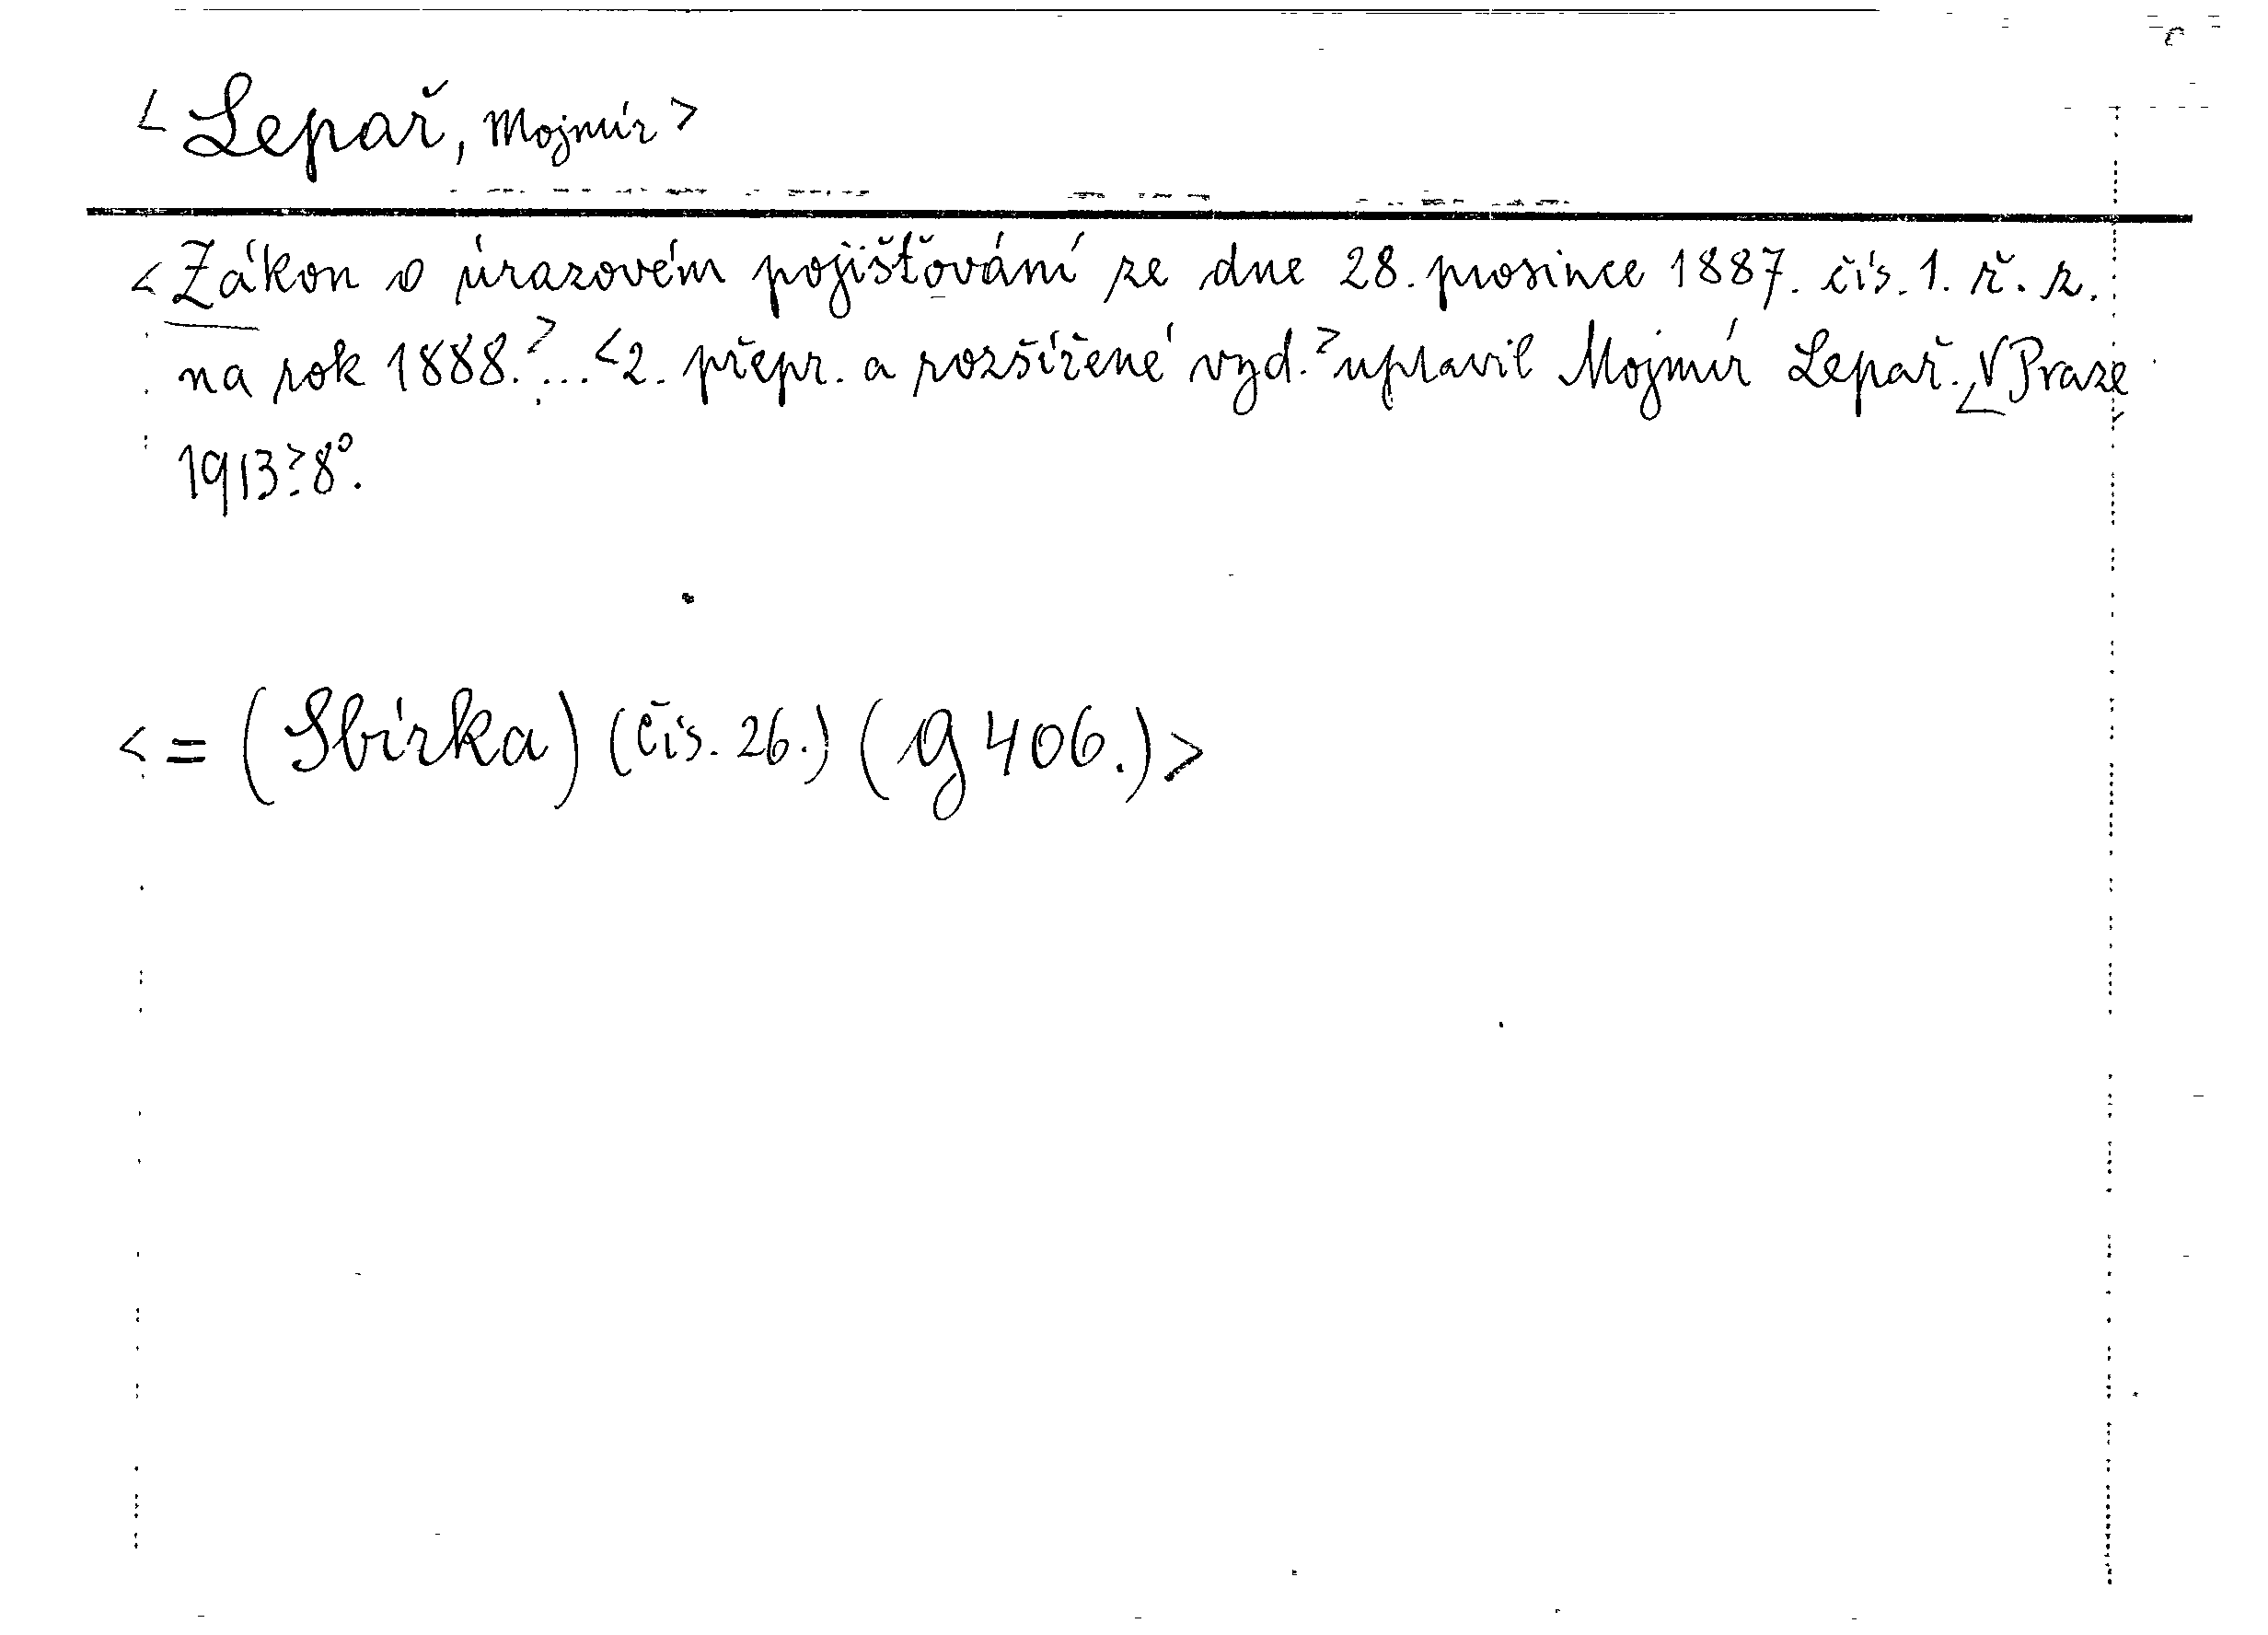 <Lepař, Mojmír>
<Zákon o úrazovém pojišťování ze dne 28. prosince 1887. čís. 1. ř. z.
na rok 1888.>... <2. přepr. a rozšířené vyd.> upravil Mojmír Lepař. <V Praze
1913.> 8°.
<= (Sbírka) (čís. 26.) (g 406.)>